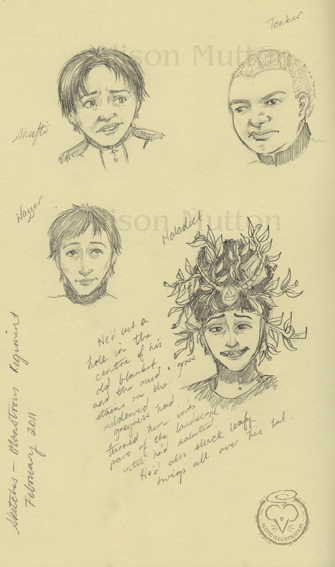 Alison Mutton
Tonker
Shufti
Wazzer
Alison Mutton
Maladict
He'd cut a
hole in the
centre of his
old blanket
and the mud & grass
stains on the
mildewed
greyness had
turned him into
part of the landscape
until he'd saluted.
He'd also stuck leafy
twigs all over his hat.
Sketches - Monstrous Regiment
February 2011
ILLUSTRATION